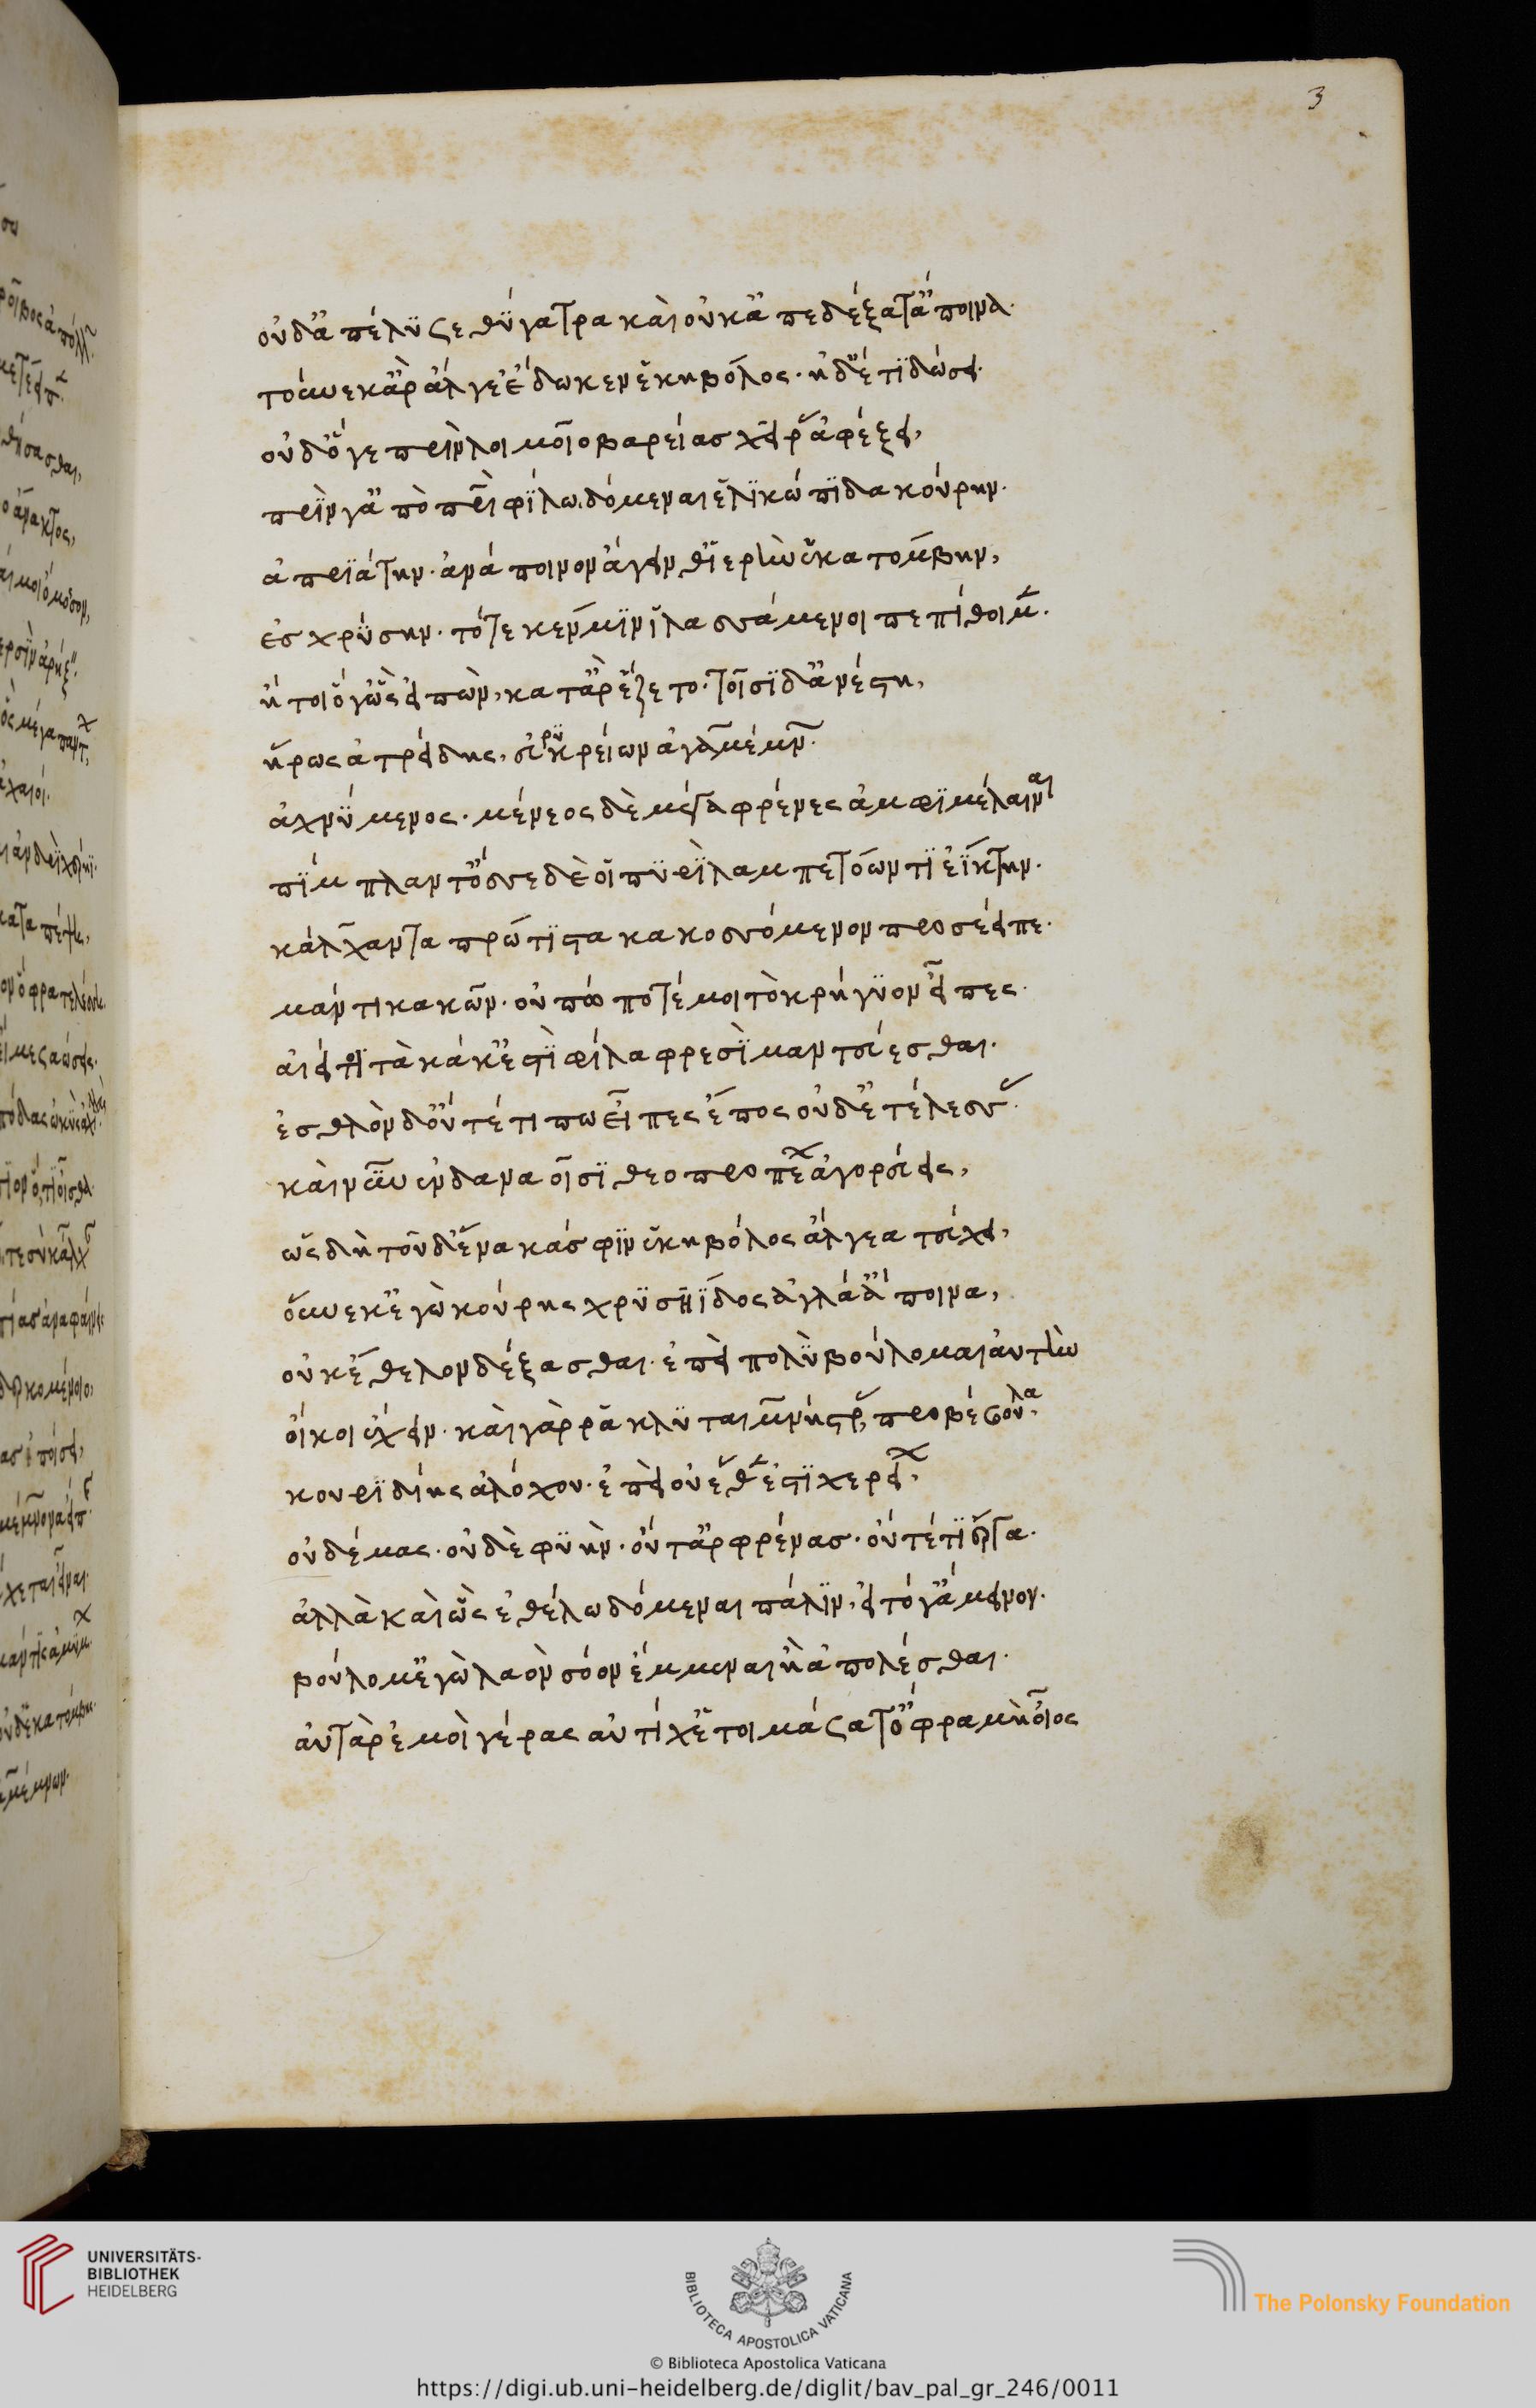 3
οὐδ' ἀπέλυσε θύγατρα καὶ οὐκ ἀπεδέξατ' ἄποινα·
τούνεκ' ἂρ ἄλγε' ἔδωκεν ἑκηβόλος· ἠδ' ἔτι δώσει·
οὐδ' ὅγε πρὶν λοιμοῖο βαρείας χεῖρας ἀφέξει,
πρίν γ' ἀπὸ πατρὶ φίλω δόμεναι ἑλικώπιδα κούρην·
ἀπριάτην· ἀνάποινον ἄγειν θ' ἱερὴν ἑκατόμβην,
ἐς χρύσην· τότε κέν μιν ἱλασσάμενοι πεπίθοιμεν·
ἤτοι ὅγ' ὣς εἰπὼν, κατ' ἂρ ἕζετο· τοῖσι δ' ἀνέστη,
ἥρως ἀτρείδης, εὐρυκρείων ἀγαμέμνων·
ἀχνύμενος· μένεος δὲ μέγα φρένες ἀμφιμέλαιναι
πίμπλαντ' ὄσσε δέ οἱ πυρὶ λαμπετόωντι ἐΐκτην·
κάλχαντα πρώτιστα κακοσσόμενον προσέειπε·
μάντι κακῶν· οὐ πώποτέ μοι τὸ κρήγυον εἶπες·
αἰεί τοι τὰ κάκ' ἐστὶ φίλα φρεσὶ μαντεύεσθαι·
ἐσθλὸν δ' οὔτέ τι πω εἶπες ἔπος οὐδ' ἐτέλεσσας·
καὶ νῦν ἐν δαναοῖσι θεοπροπέων ἀγορεύεις,
ὡς δὴ τοῦδ' ἕνεκά σφιν ἑκηβόλος ἄλγεα τεύχει,
οὕνεκ' ἐγὼ κούρης χρυσηΐδος ἀγλά' ἄποινα,
οὐκ ἔθελον δέξασθαι· ἐπεὶ πολὺ βούλομαι αὐτὴν
οἴκοι ἔχειν· καὶ γάρ ῥα κλυταιμνήστρης προβέβουλα·
κουριδίης ἀλόχου· ἐπεὶ οὔ ἑθέν ἐστι χερείων,
οὐ δέμας· οὐδὲ φυήν· οὔτ' ἂρ φρένας· οὔτέ τι ἔργα·
ἀλλὰ καὶ ὣς ἐθέλω δόμεναι πάλιν, εἰ τόγ' ἄμεινον·
βούλομ' ἐγὼ λαὸν σόον ἔμμεναι ἢ ἀπολέσθαι·
αὐτὰρ ἐμοὶ γέρας αὐτίχ' ἑτοιμάσατ' ὄφρα μὴ οἶος
UNIVERSITÄTS-
BIBLIOTHEK
HEIDELBERG
BIBLIOTECA APOSTOLICA VATICANA
The Polonsky Foundation
© Biblioteca Apostolica Vaticana
https://digi.ub.uni-heidelberg.de/diglit/bav_pal_gr_246/0011